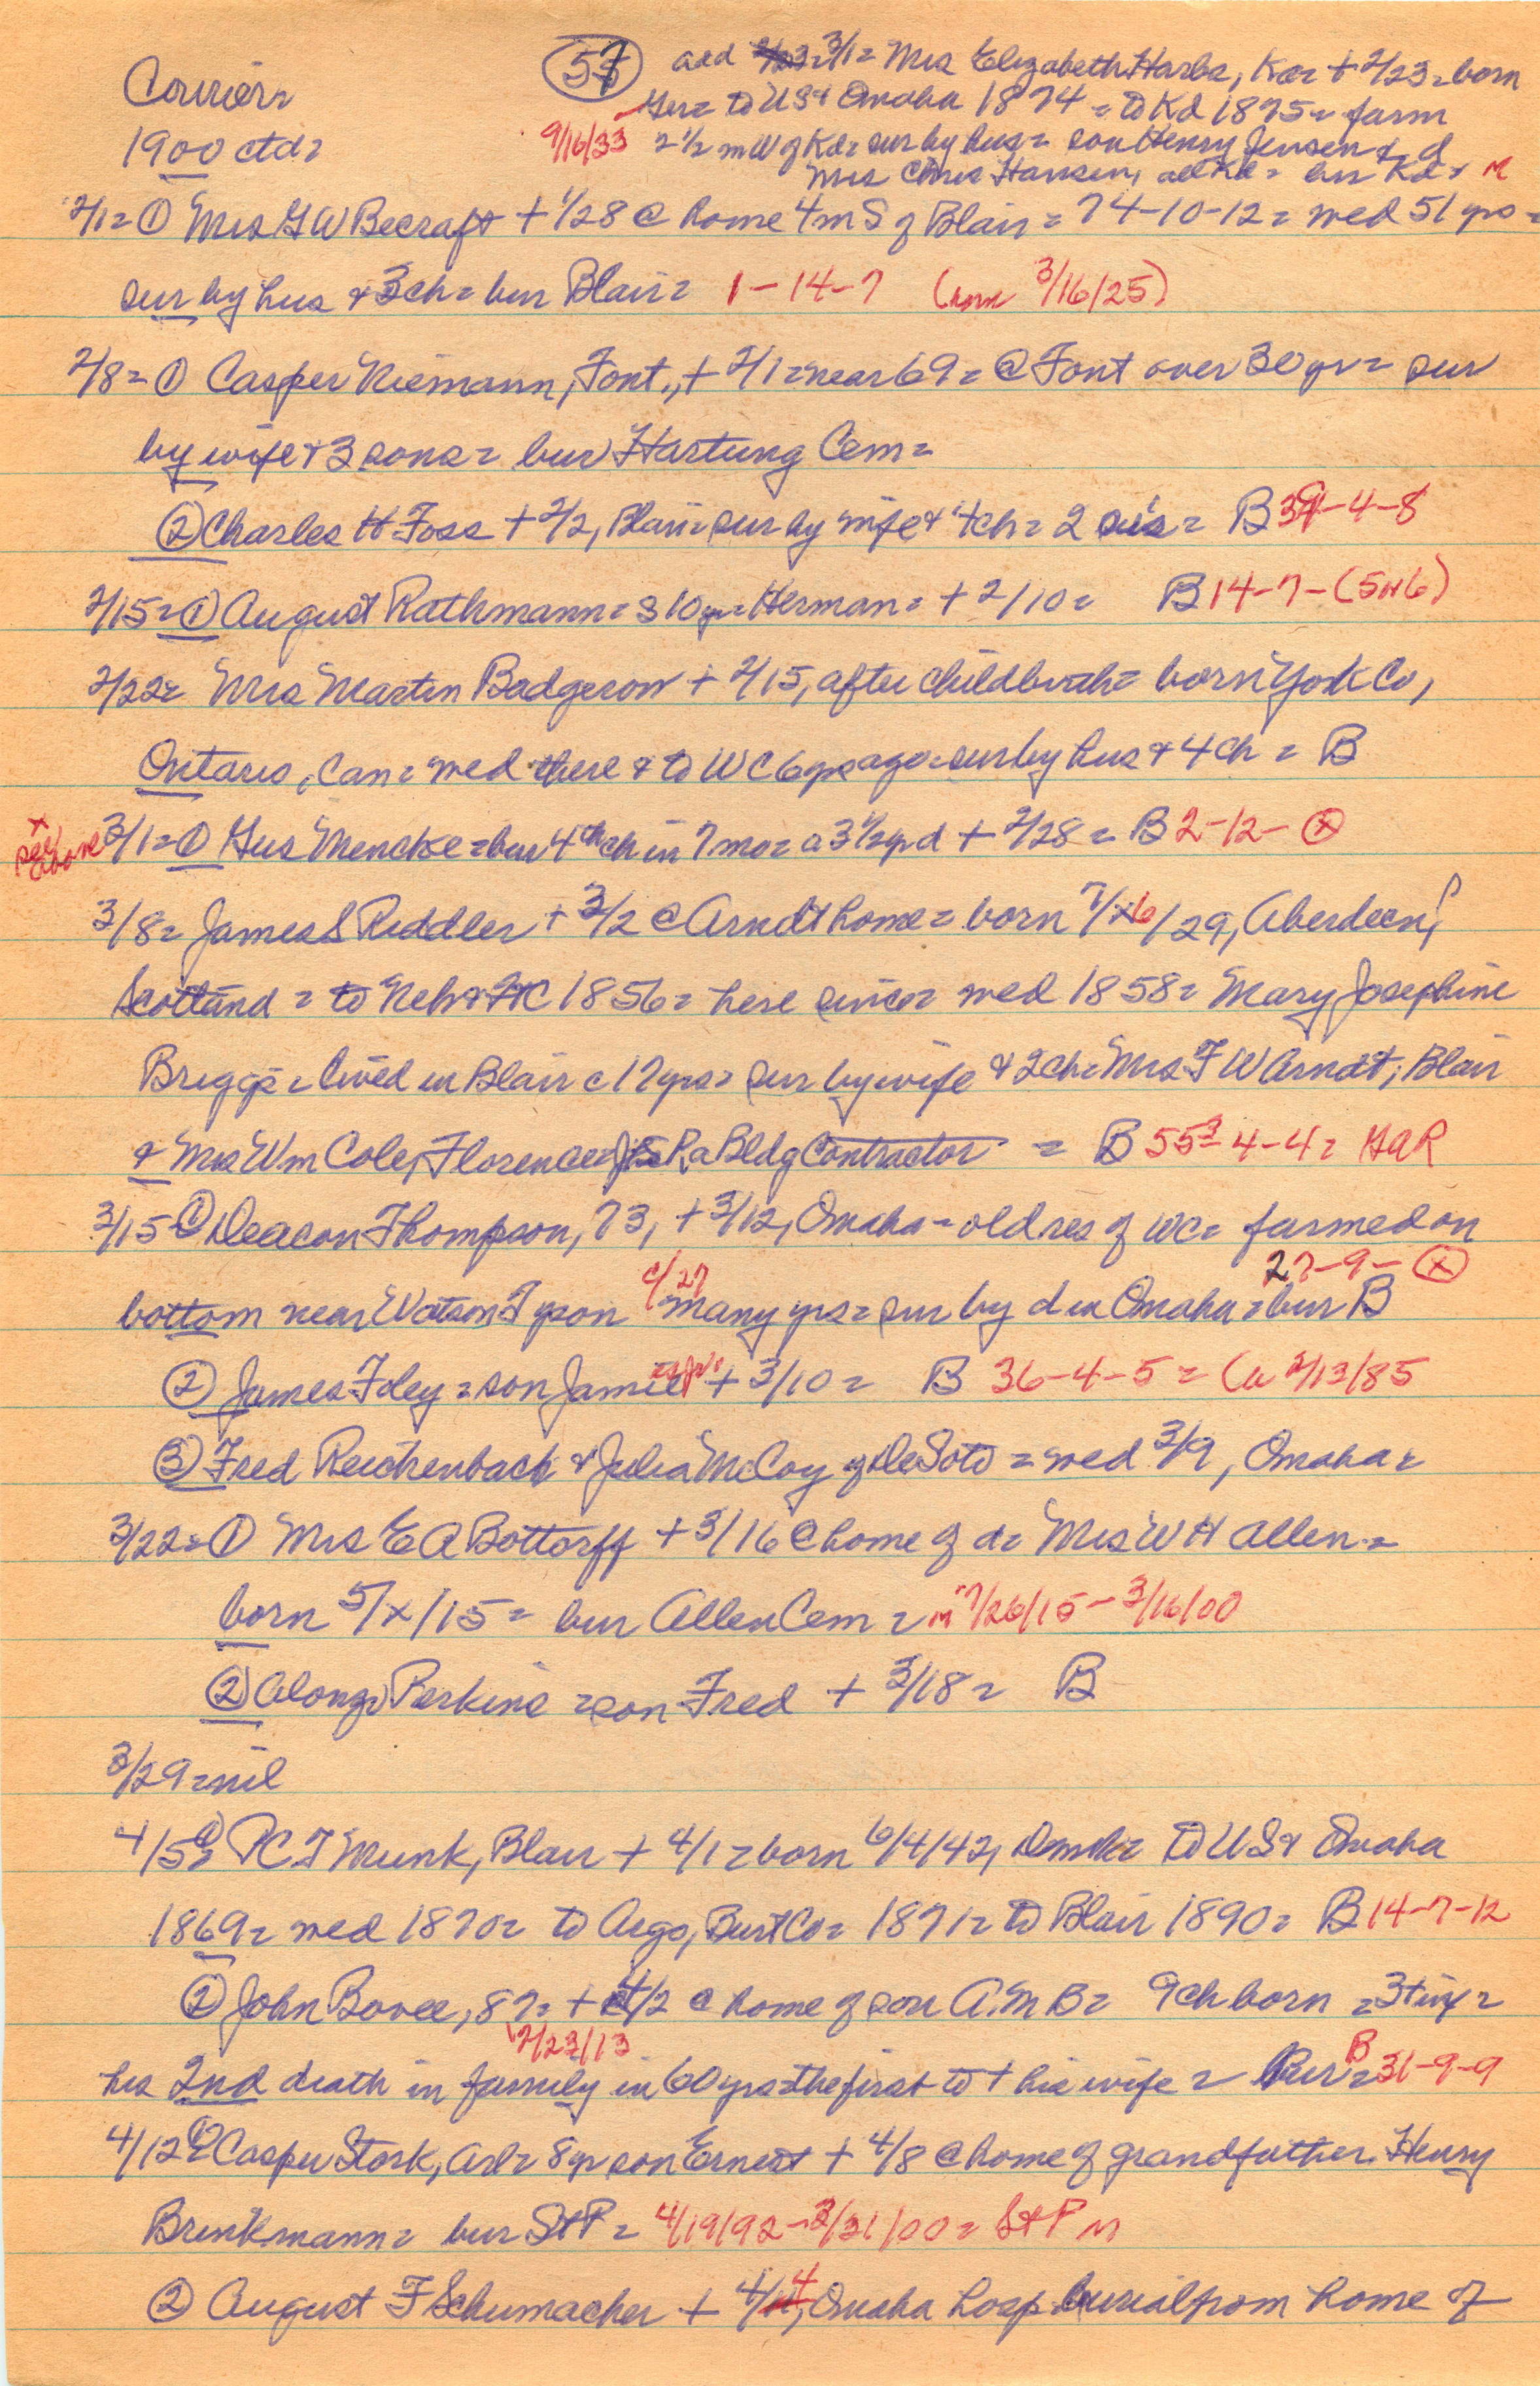 Courier=
1900 ctd=
57
add 3/1= Mrs Elizabeth Harbs, Ka= + 2/23= born
Ger= to US & Omaha 1874 = to Kd 1875= farm
9/16/33 2 1/2 m W of Kd= sur by hus= son Henry Jensen & d
Mrs Chris Hansen, all Kd = bur Kd= M
2/1= ① Mrs G W Becraft + 1/28 @ home 4 m S of Blair = 74-10-12= wed 51 yrs =
sur by hus & 3 ch= bur Blair= 1-14-7 ( 3/16/25)
2/8= ① Casper Niemann, Font., + 2/1= near 69= @ Font over 30 yr= sur
by wife & 3 sons= bur Hartung Cem=
② Charles H Foss + 2/2, Blair= sur by wife & 4 ch= 2 sis= B 39-4-8
2/15= ① August Rathmann= s 10 yr= Herman= + 2/10= B 14-7-(5 or 6)
2/22= Mrs Martin Badgerow + 2/15, after childbirth= born York Co,
Ontario, Can= wed there & to WC 6 yrs ago= sur by hus & 4 ch = B
x see above 3/1= ① Gus Mencke= bur 4th ch in 7 mo= a 3 1/2 yr d + 2/28= B 2-12- ⓧ
3/8= James S Riddler + 3/2 @ Arndt home= born 7/16/29, Aberdeen,
Scotland = to Neb & WC 1856= here since= wed 1858= Mary Josephine
Briggs= lived in Blair c 17 yrs= sur by wife & 2 ch= Mrs F W Arndt, Blair
& Mrs Wm Cole, Florence= JSR a Bldg Contractor = B 55-4-4= GAR
3/15 ① Deacon Thompson, 73, + 3/12, Omaha= old res of WC= farmed on
bottom near Watson Tyson c/27 many yrs= sur by d in Omaha= bur B 27-9- ⓧ
② James Foley= son Jamie + 3/10= B 36-4-5= Ca 2/13/85
③ Fred Reichenback & Julia McCoy of DeSoto = wed 3/9, Omaha=
3/22= ① Mrs E A Bottorff + 3/16 @ home of d= Mrs W H Allen=
born 5/x/15= bur Allen Cem= M 7/26/15-3/16/00
② Alonzo Perkins= son Fred + 3/18= B
3/29= nil
4/5= ① P C T Munk, Blair + 4/1= born 6/4/42, Denmk= to US & Omaha
1869= wed 1870= to Argo, Burt Co= 1871= to Blair 1890= B 14-7-12
② John Bovee, 87= + 4/2 @ home of son A.M B= 9 ch born = 3 livg=
2/23/13
his 2nd death in family in 60 yrs= the first to + his wife = Bur= B 31-9-9
4/12= ① Casper Stork, Arl= 8 yr son Ernest + 4/8 @ home of grandfather Henry
Brinkmann= bur St P= 4/19/92-3/31/00= St P M
② August F Schumacher + 4/4, Omaha hosp= burial from home of